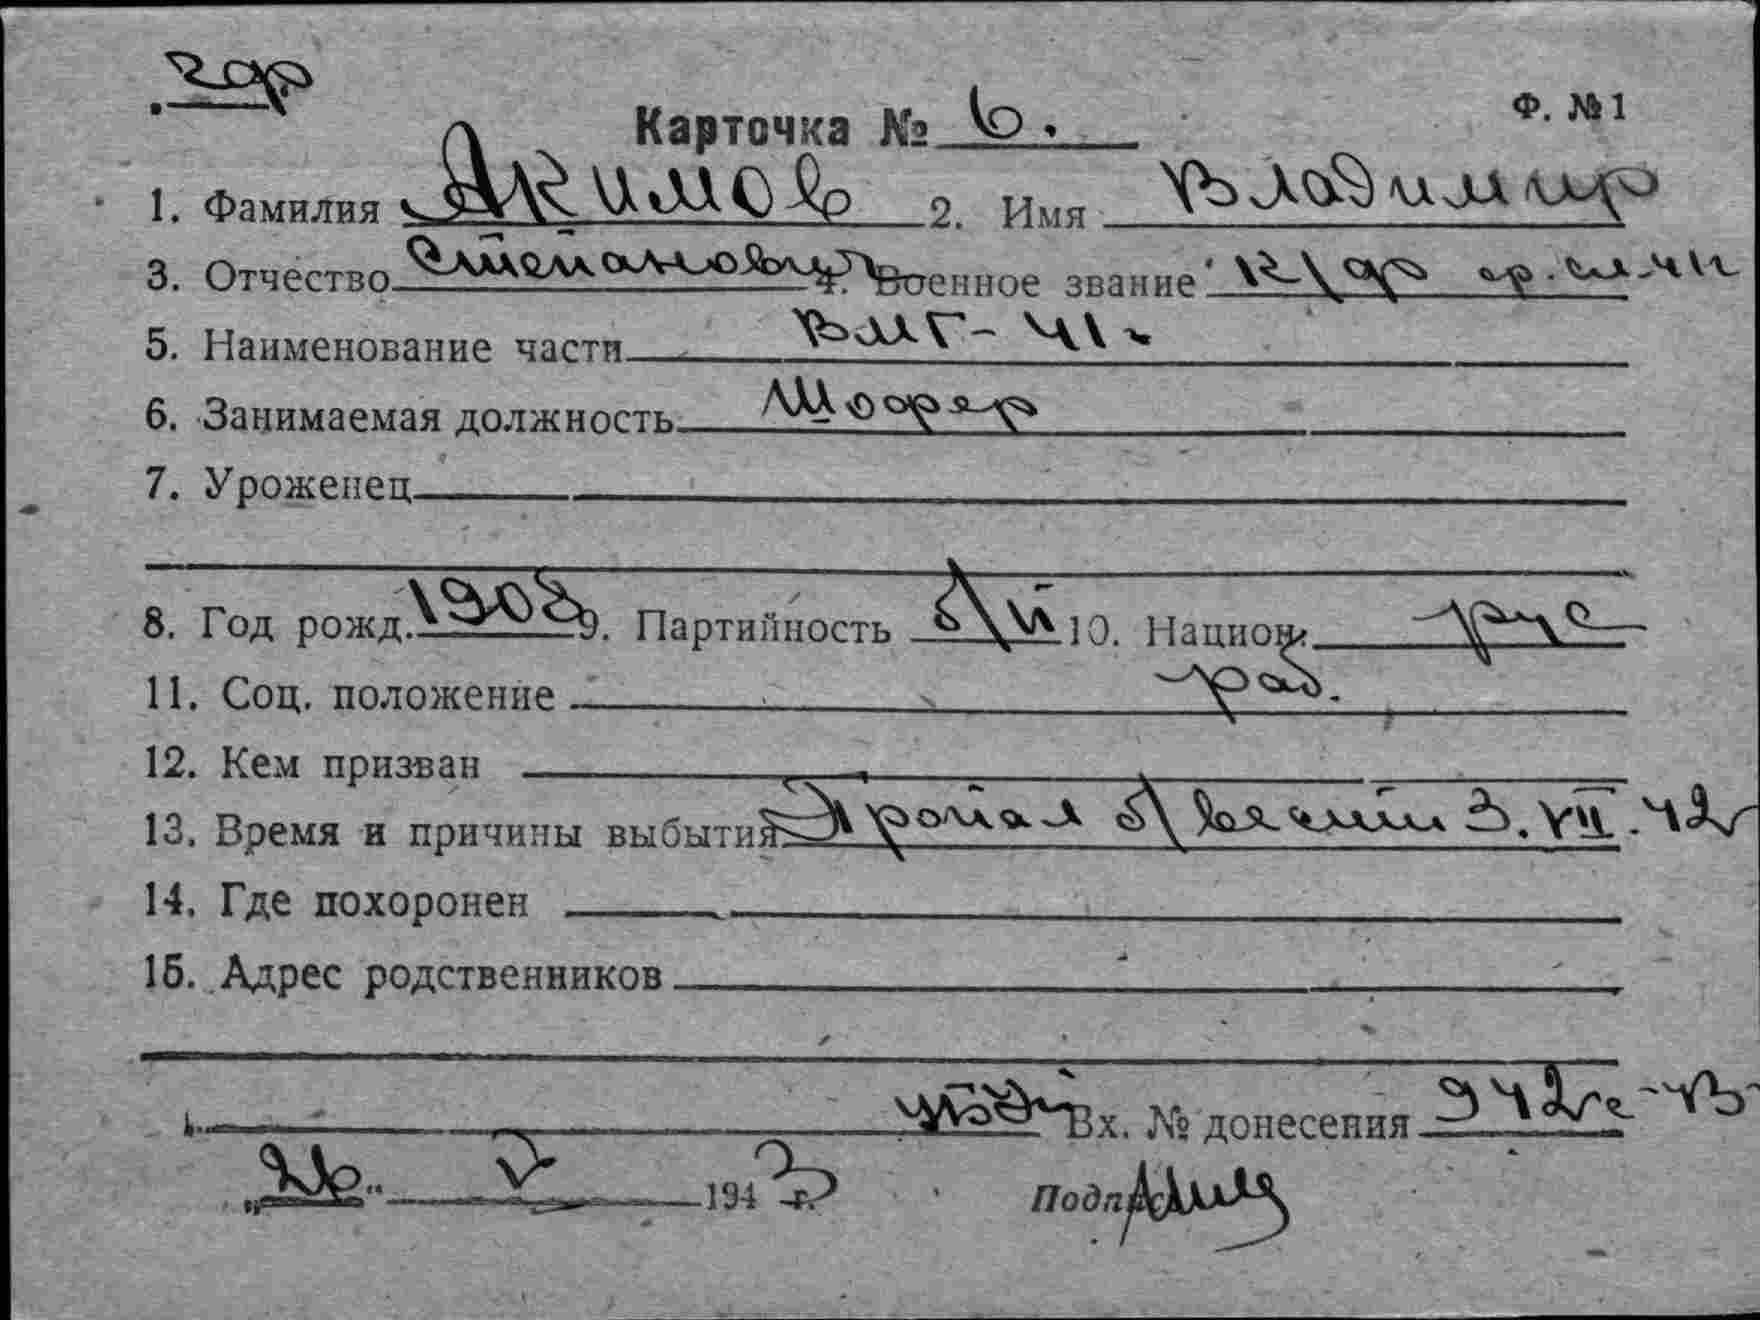 Карточка № 6.
Ф. № 1
1. Фамилия Акимов 2. Имя Владимир
3. Отчество Степанович 4. Военное звание к/ф
5. Наименование части ВМГ-41
6. Занимаемая должность шофер
7. Уроженец
8. Год рожд. 1908 9. Партийность б/п 10. Национ. рус
11. Соц. положение раб.
12. Кем призван
13. Время и причины выбытия Пропал б/вести 3.VII.42г
14. Где похоронен
15. Адрес родственников
Вх. № донесения 342
„26“ V 1943 г.
Подпись